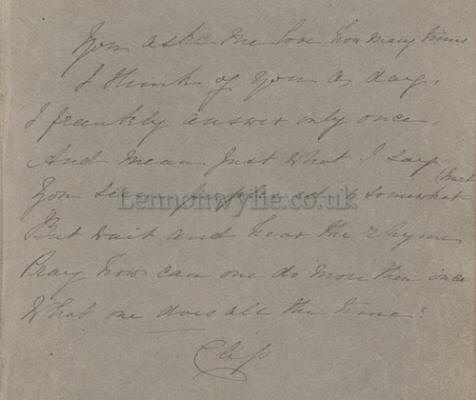 You ask me love how many times
I think of you a day,
I frankly answer only once,
And mean just what I say
You see surprised somewhat
But wait and hear the rhyme
Pray how can one do more then once
What one does all the time!
Lennonwylie.co.uk